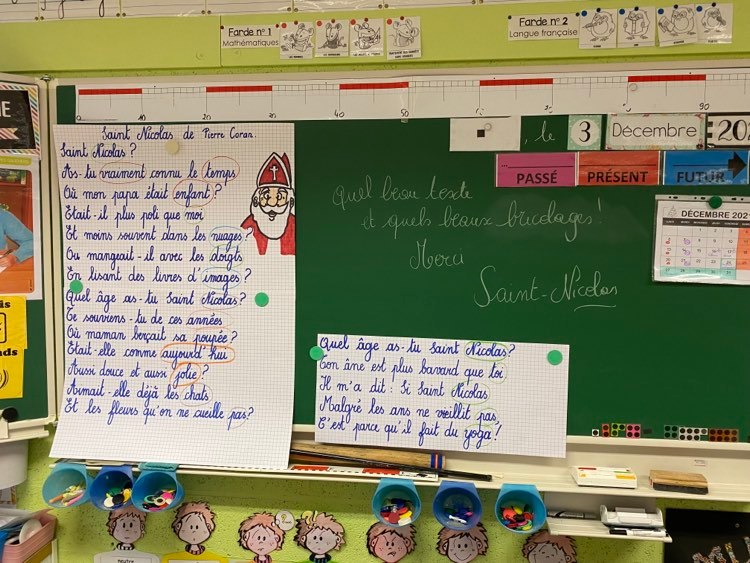 Farde n° 1
Mathématiques
Farde n° 2
Langue française
20
40
50
90
, le 3 Décembre 202
PASSÉ PRÉSENT FUTUR
DÉCEMBRE 202
Saint Nicolas de Pierre Coran.
Saint Nicolas ?
As-tu vraiment connu le temps
Où mon papa était enfant ?
Etait-il plus poli que moi
Et moins souvent dans les nuages ?
Ou mangeait-il avec les doigts
En lisant des livres d'images ?
Quel âge as-tu Saint Nicolas ?
Te souviens-tu de ces années
Où maman berçait sa poupée ?
Etait-elle comme aujourd'hui
Aussi douce et aussi jolie ?
Aimait-elle déjà les chats
Et les fleurs qu'on ne cueille pas ?
Quel beau texte
et quels beaux bricolages !
Merci
Saint-Nicolas
Quel âge as-tu Saint Nicolas ?
Ton âne est plus bavard que toi
Il m'a dit : Si Saint Nicolas
Malgré les ans ne vieillit pas
C'est parce qu'il fait du yoga !